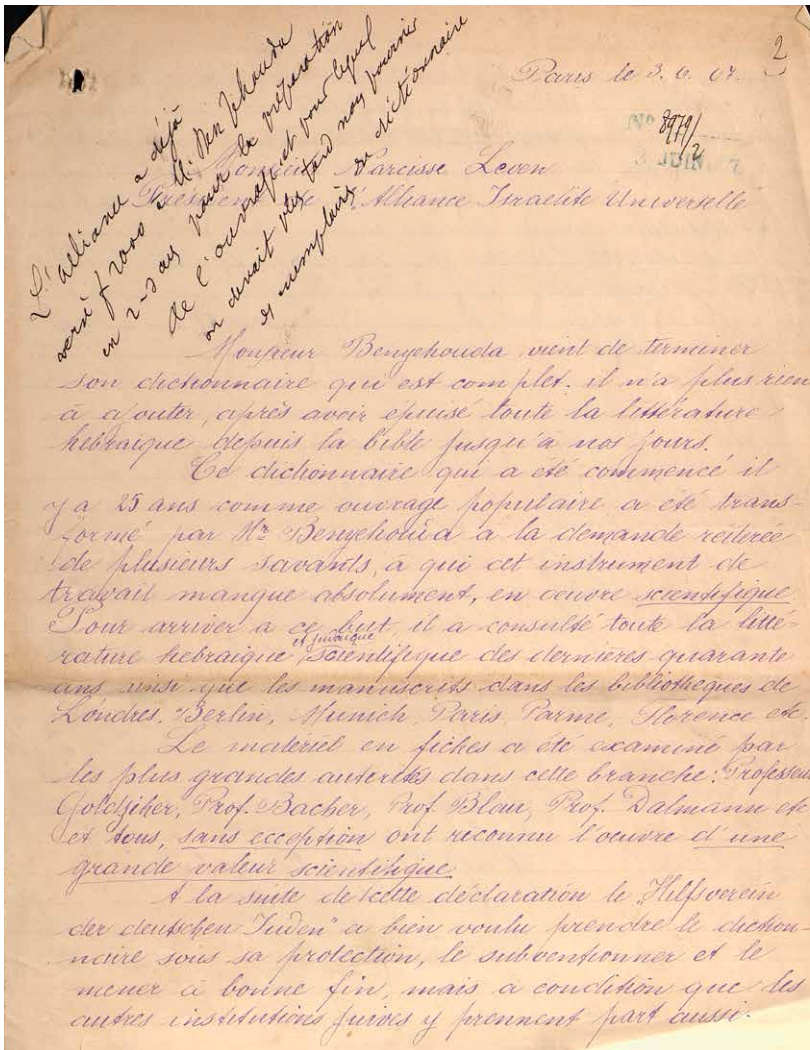 2
Paris le 3. 6. 07.
No 8979/2
3 JUIN 7
Monsieur Narcisse Leven
Président de l'Alliance Israelite Universelle
L'alliance a déjà
versé f 2000 à M. Ben Jehouda
en 2-3 ans pour la préparation
de l'ouvrage et pour lequel
on devait plus tard nous fournir
exemplaires du dictionnaire
Monsieur Benyehouda vient de terminer
son dictionnaire qui est complet. il n'a plus rien
à ajouter, après avoir épuisé toute la littérature
hebraique depuis la bible jusqu'à nos jours.
Ce dictionnaire qui a été commencé il
y a 25 ans comme ouvrage populaire a été trans-
formé par Mr Benyehouda a la demande réiterée
de plusieurs savants, à qui cet instrument de
travail manque absolument, en oeuvre scientifique.
Pour arriver a ce but, il a consulté toute la litté-
rature hebraique et judaique scientifique des dernieres quarante
ans, ainsi que les manuscrits dans les bibliothèques de
Londres, Berlin, Munich, Paris, Parme, Florence etc.
Le matériel en fiches a été examiné par
les plus grandes autorités dans cette branche: Professeur
Goldziher, Prof. Bacher, Prof. Blau, Prof. Dalmann etc
et tous, sans exception ont reconnu l'oeuvre d'une
grande valeur scientifique
A la suite de cette déclaration le „Hilfsverein
der deutschen Juden" a bien voulu prendre le diction-
naire sous sa protection, le subventionner et le
mener à bonne fin, mais a condition que les
autres institutions juives y prennent part aussi.